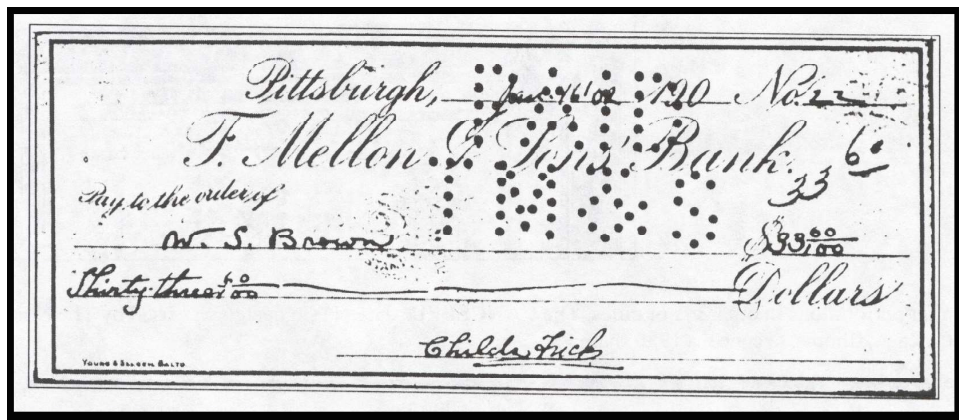 Pittsburgh, Jan. 16' 02 190 No. 22
T. Mellon & Sons' Bank. 33 60
Pay to the order of
W. S. Brown $33 60/100
Thirty three 60/100 Dollars
Childs Frick
YOUNG & SELDEN BALTO